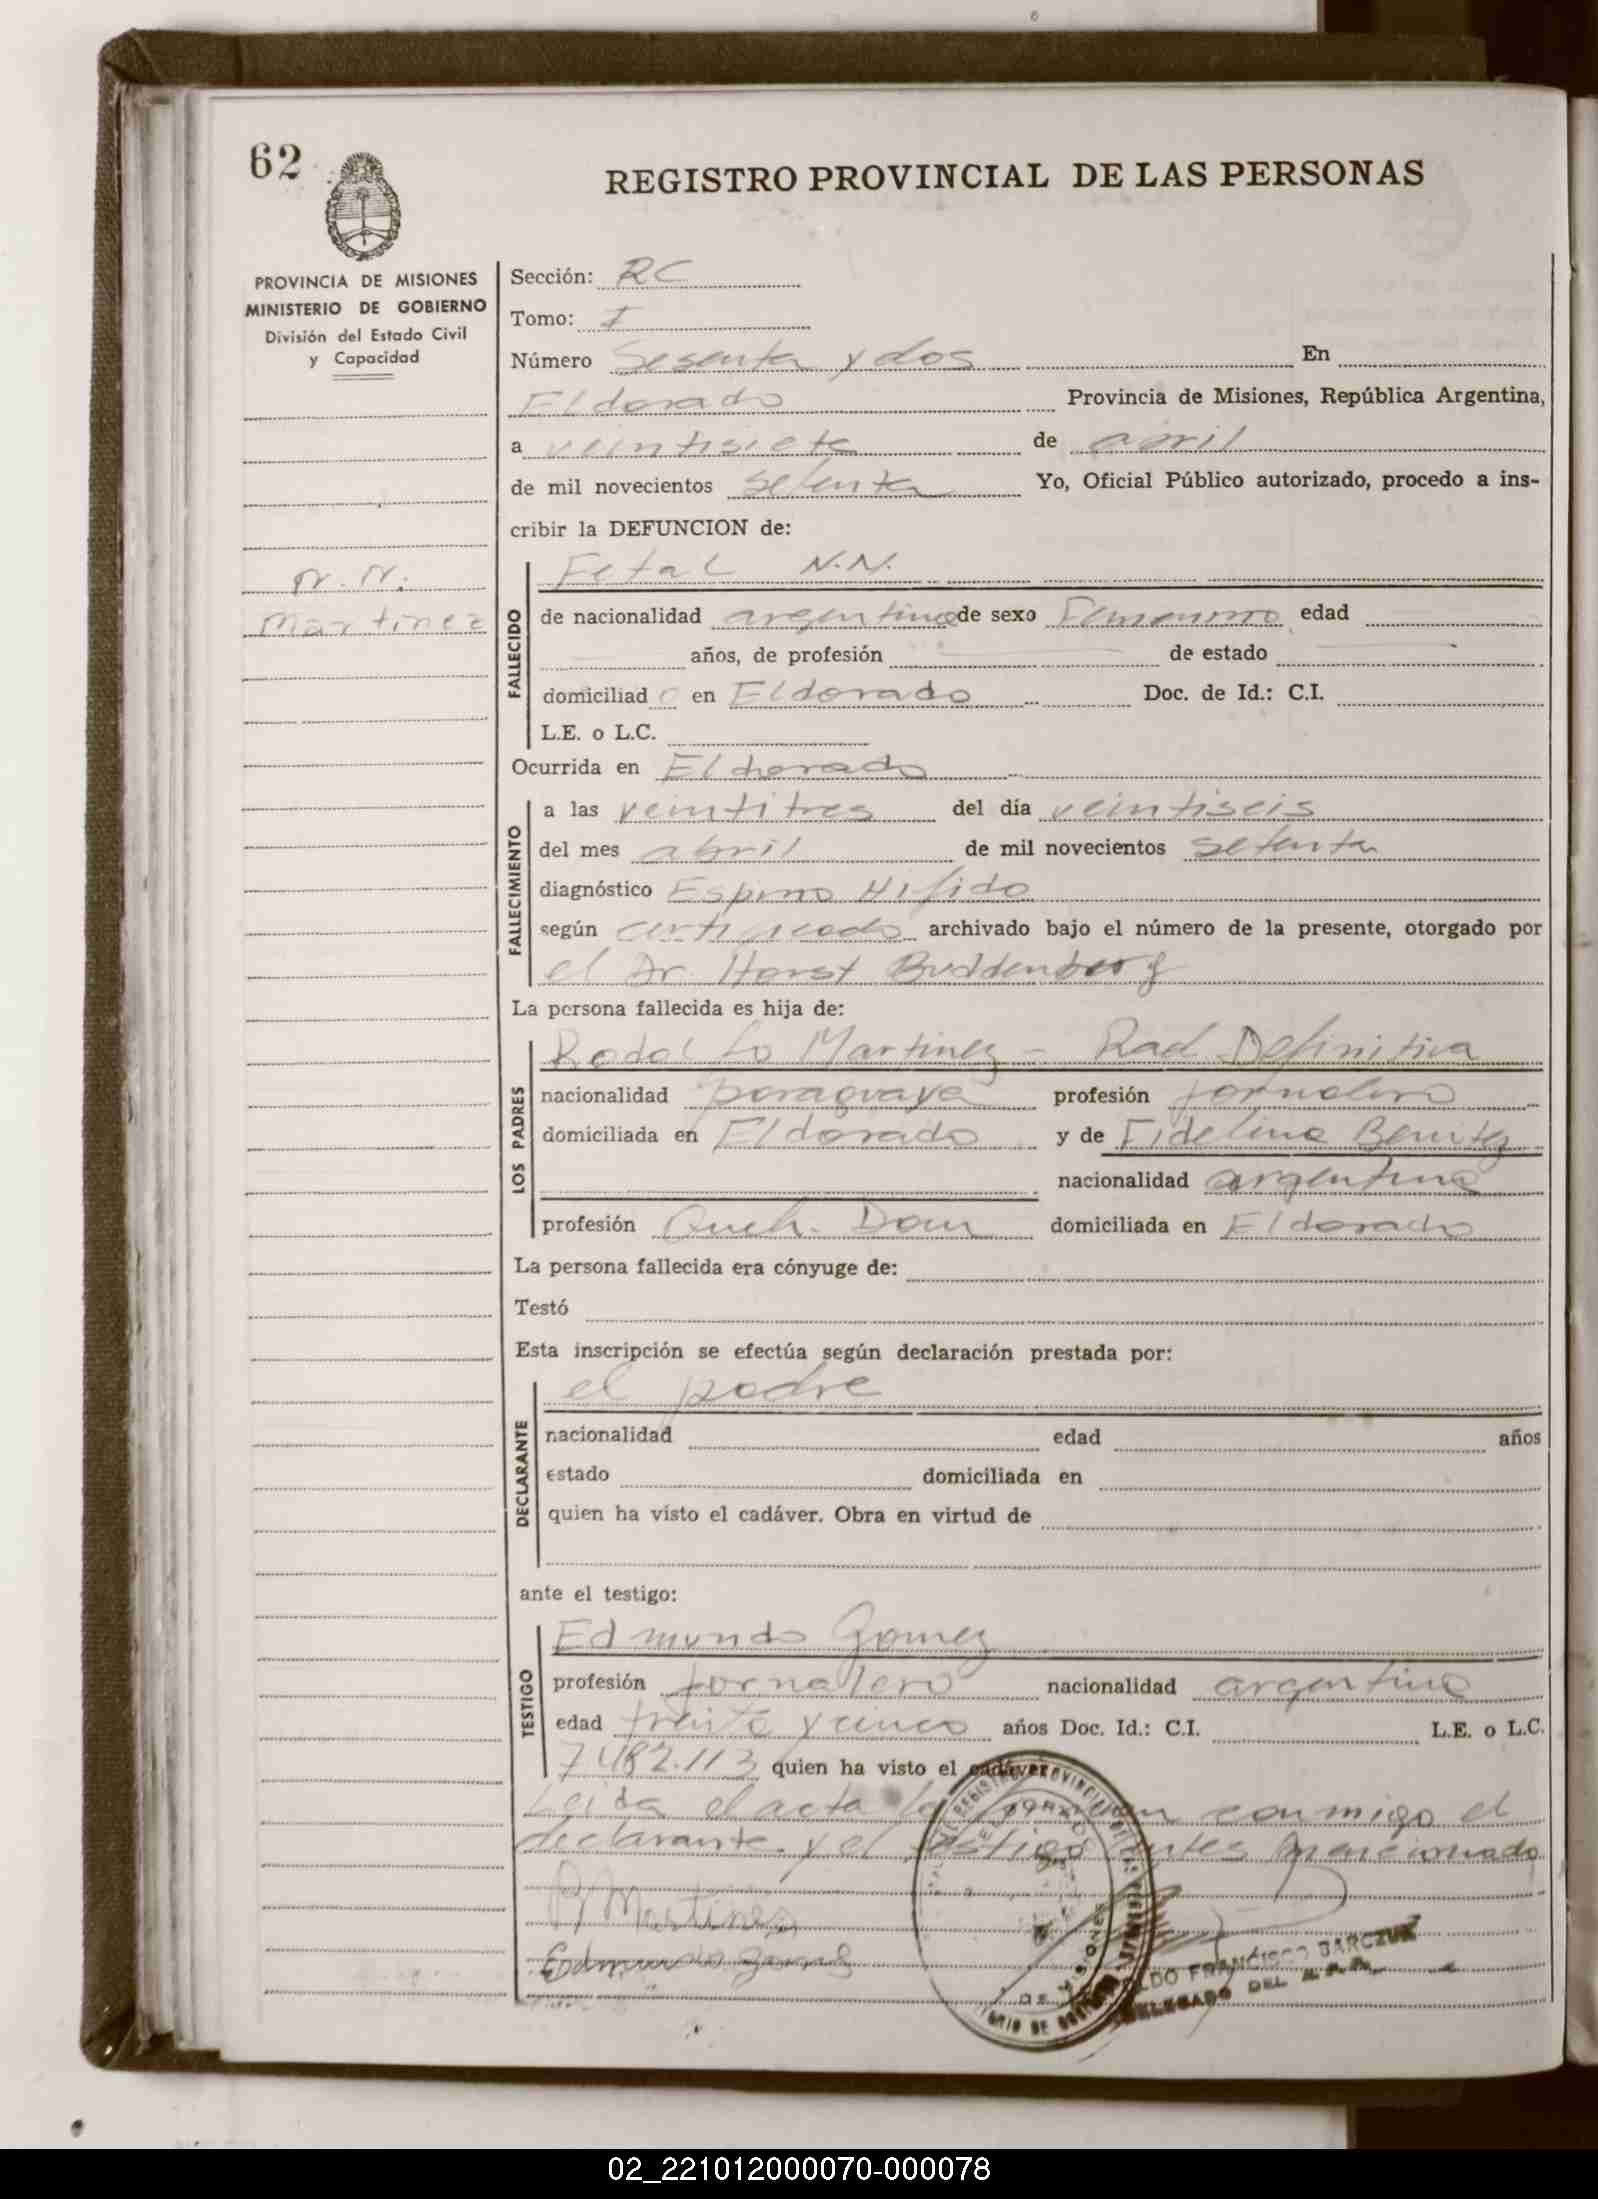 62
REGISTRO PROVINCIAL DE LAS PERSONAS
PROVINCIA DE MISIONES
MINISTERIO DE GOBIERNO
División del Estado Civil
y Capacidad
N.N.
Martinez
Sección: RC
Tomo: I
Número Sesenta y dos En
Eldorado Provincia de Misiones, República Argentina,
a veintisiete de abril
de mil novecientos setenta Yo, Oficial Público autorizado, procedo a ins-
cribir la DEFUNCION de:
FALLECIDO
Fetal N.N.
de nacionalidad argentina de sexo Femenino edad
años, de profesión de estado
domiciliado en Eldorado Doc. de Id.: C.I.
L.E. o L.C.
Ocurrida en Eldorado
FALLECIMIENTO
a las veintitres del día veintiseis
del mes abril de mil novecientos setenta
diagnóstico Espino Hifido
según certificado archivado bajo el número de la presente, otorgado por
el Dr Horst Buddenberg
La persona fallecida es hija de:
LOS PADRES
Rodolfo Martinez - Rad Definitiva
nacionalidad paraguaya profesión jornalero
domiciliada en Eldorado y de Fidelina Benitez
nacionalidad argentina
profesión Queh. Dom domiciliada en Eldorado
La persona fallecida era cónyuge de:
Testó
Esta inscripción se efectúa según declaración prestada por:
DECLARANTE
el padre
nacionalidad edad años
estado domiciliada en
quien ha visto el cadáver. Obra en virtud de
ante el testigo:
TESTIGO
Edmundo Gomez
profesión jornalero nacionalidad argentina
edad treinta y cinco años Doc. Id.: C.I. L.E. o L.C.
7.482.113 quien ha visto el cadáver
Leida el acta la firman conmigo el
declarante y el testigo antes mencionado
R Martinez
Edmundo Gomez
FRANCISCO BARCZUK
DELEGADO DEL
02_221012000070-000078